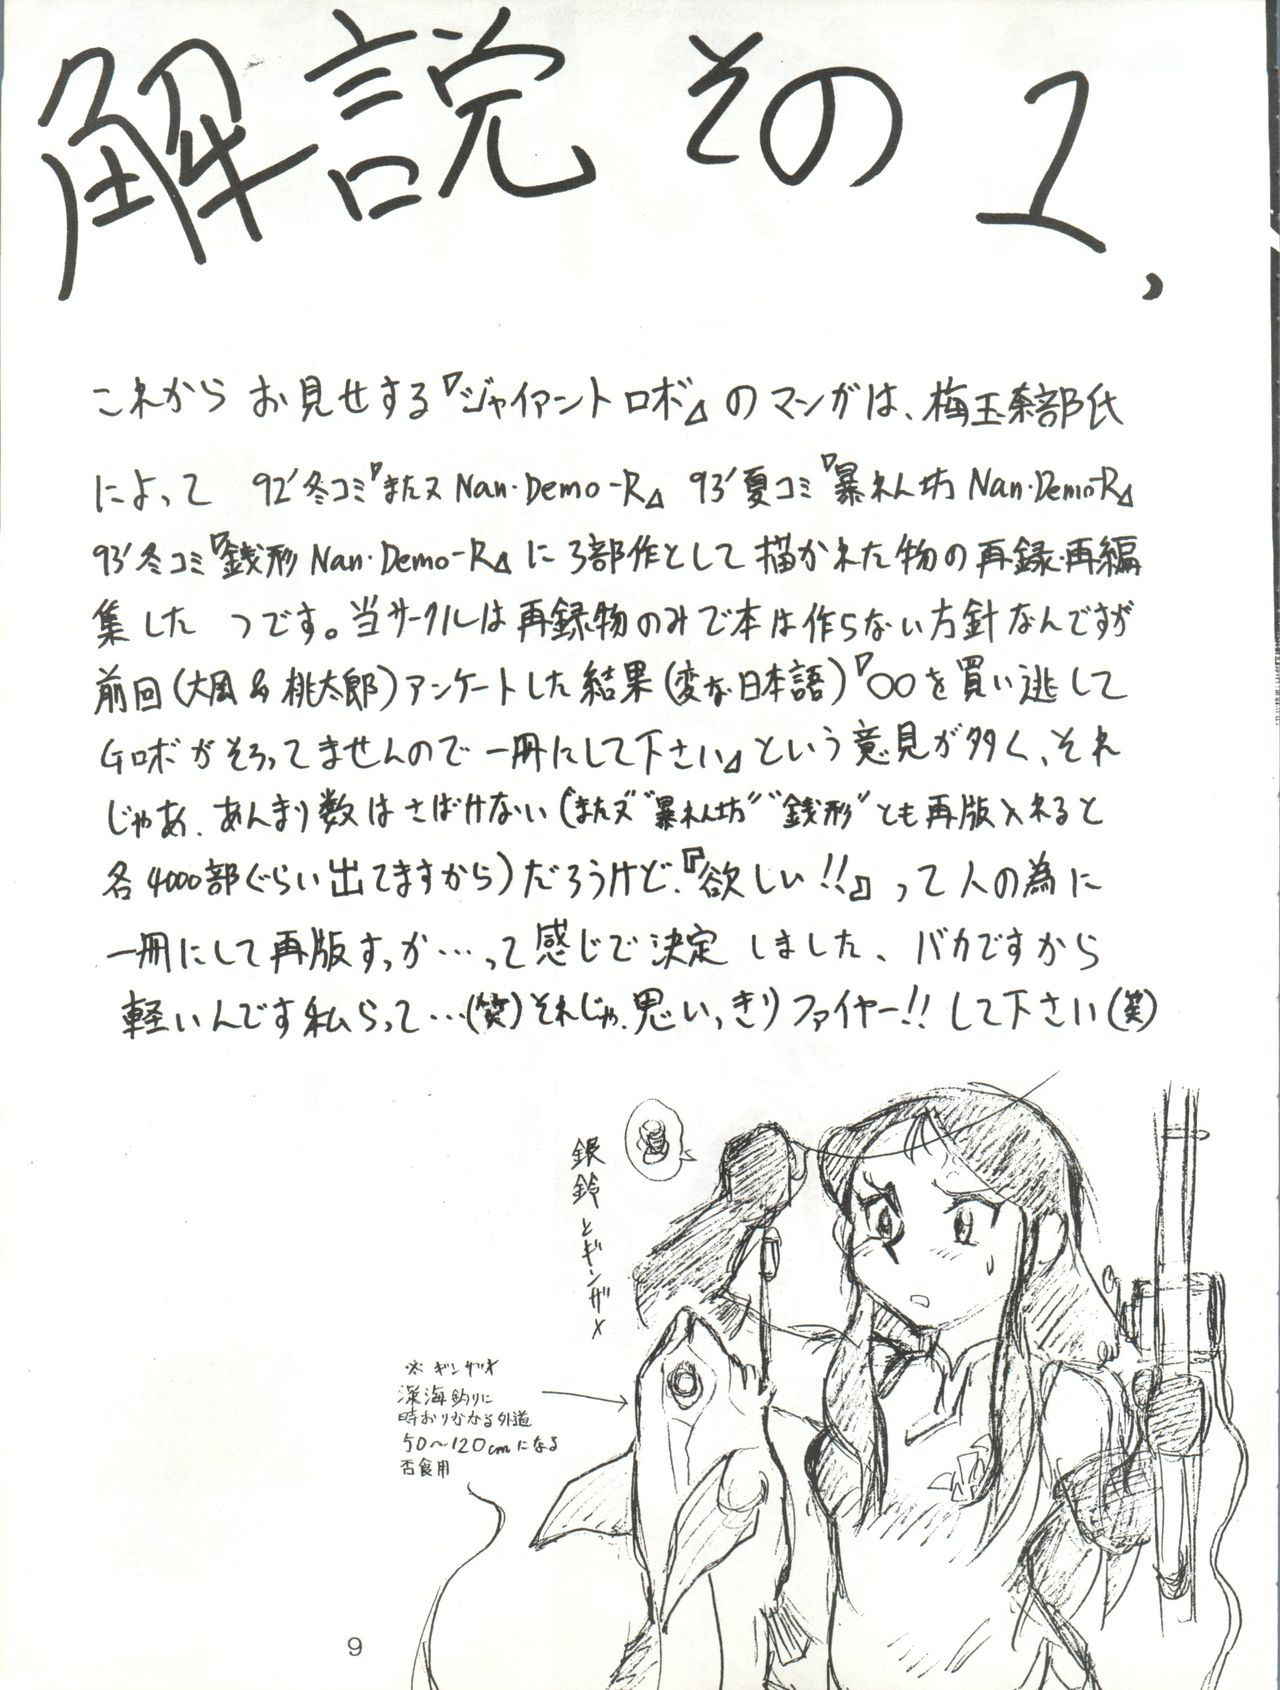 解説その1,
これから お見せする『ジャイアントロボ』のマンガは、梅玉奈部氏
によって 92'冬コミ『またヌ Nan・Demo-R』 93'夏コミ『暴れん坊 Nan・Demo-R』
93'冬コミ『銭形 Nan・Demo-R』に3部作として描かれた物の再録・再編
集した つです。当サークルは再録物のみで本は作らない方針なんですが
前回(大風&桃太郎)アンケートした結果(変な日本語)『〇〇を買い逃して
Gロボがそろってませんので一冊にして下さい』という意見が多く、それ
じゃあ、あんまり数はさばけない("またヌ""暴れん坊""銭形"とも再版入れると
各4000部ぐらい出てますから)だろうけど、『欲しい!!』って人の為に
一冊にして再版すっか…って感じで決定しました、バカですから
軽いんです私らって…(笑)それじゃ、思いっきりファイヤー!!して下さい(笑)
銀鈴とギンザメ
※ギンザメ
深海釣りに
時おりかかる外道
50〜120cmになる
否食用
9